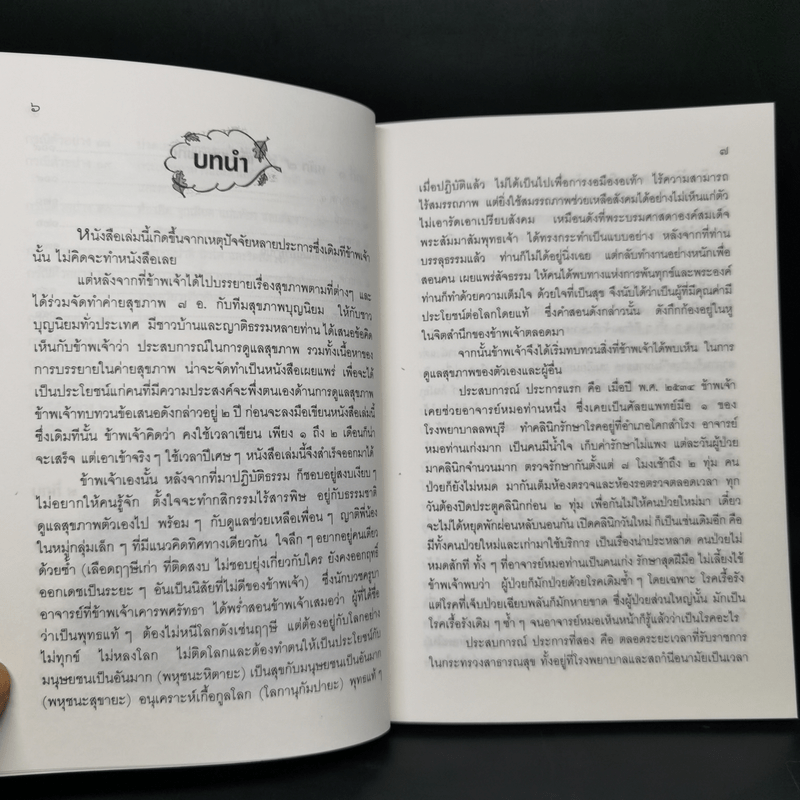 ๖
บทนำ
หนังสือเล่มนี้เกิดขึ้นจากเหตุปัจจัยหลายประการซึ่งเดิมทีข้าพเจ้า
นั้น ไม่คิดจะทำหนังสือเลย
แต่หลังจากที่ข้าพเจ้าได้ไปบรรยายเรื่องสุขภาพตามที่ต่างๆ และ
ได้ร่วมจัดทำค่ายสุขภาพ ๗ อ. กับทีมสุขภาพบุญนิยม ให้กับชาว
บุญนิยมทั่วประเทศ มีชาวบ้านและญาติธรรมหลายท่าน ได้เสนอข้อคิด
เห็นกับข้าพเจ้าว่า ประสบการณ์ในการดูแลสุขภาพ รวมทั้งเนื้อหาของ
การบรรยายในค่ายสุขภาพ น่าจะจัดทำเป็นหนังสือเผยแพร่ เพื่อจะได้
เป็นประโยชน์แก่คนที่มีความประสงค์จะพึ่งตนเองด้านการดูแลสุขภาพ
ข้าพเจ้าทบทวนข้อเสนอดังกล่าวอยู่ ๒ ปี ก่อนจะลงมือเขียนหนังสือเล่มนี้
ซึ่งเดิมทีนั้น ข้าพเจ้าคิดว่า คงใช้เวลาเขียน เพียง ๑ ถึง ๒ เดือนก็น่า
จะเสร็จ แต่เอาเข้าจริงๆ ใช้เวลาปีเศษๆ หนังสือเล่มนี้จึงสำเร็จออกมาได้
ข้าพเจ้าเองนั้น หลังจากที่มาปฏิบัติธรรม ก็ชอบอยู่สงบเงียบๆ
ไม่อยากให้คนรู้จัก ตั้งใจจะทำกสิกรรมไร้สารพิษ อยู่กับธรรมชาติ
ดูแลสุขภาพตัวเองไป พร้อม ๆ กับดูแลช่วยเหลือเพื่อน ๆ ญาติพี่น้อง
ในหมู่กลุ่มเล็ก ๆ ที่มีแนวคิดทิศทางเดียวกัน ใจลึก ๆ อยากอยู่คนเดียว
ด้วยซ้ำ (เลือดฤๅษีเก่า ที่ติดสงบ ไม่ชอบยุ่งเกี่ยวกับใคร ยังคงออกฤทธิ์
ออกเดชเป็นระยะ ๆ อันเป็นนิสัยที่ไม่ดีของข้าพเจ้า) ซึ่งนักบวชครูบา
อาจารย์ที่ข้าพเจ้าเคารพศรัทธา ได้พร่ำสอนข้าพเจ้าเสมอว่า ผู้ที่ได้ชื่อ
ว่าเป็นพุทธแท้ ๆ ต้องไม่หนีโลกดังเช่นฤๅษี แต่ต้องอยู่กับโลกอย่าง
ไม่ทุกข์ ไม่หลงโลก ไม่ติดโลกและต้องทำตนให้เป็นประโยชน์กับ
มนุษยชนเป็นอันมาก (พหุชนะหิตายะ) เป็นสุขกับมนุษยชนเป็นอันมาก
(พหุชนะสุขายะ) อนุเคราะห์เกื้อกูลโลก (โลกานุกัมปายะ) พุทธแท้ ๆ
๗
เมื่อปฏิบัติแล้ว ไม่ได้เป็นไปเพื่อการงอมืองอเท้า ไร้ความสามารถ
ไร้สมรรถภาพ แต่ยิ่งใช้สมรรถภาพช่วยเหลือสังคมได้อย่างไม่เห็นแก่ตัว
ไม่เอารัดเอาเปรียบสังคม เหมือนดังที่พระบรมศาสดาองค์สมเด็จ
พระสัมมาสัมพุทธเจ้า ได้ทรงกระทำเป็นแบบอย่าง หลังจากที่ท่าน
บรรลุธรรมแล้ว ท่านก็ไม่ได้อยู่นิ่งเฉย แต่กลับทำงานอย่างหนักเพื่อ
สอนคน เผยแพร่สัจธรรม ให้คนได้พบทางแห่งการพ้นทุกข์และพระองค์
ท่านก็ทำด้วยความเต็มใจ ด้วยใจที่เป็นสุข จึงนับได้ว่าเป็นผู้ที่มีคุณค่ามี
ประโยชน์ต่อโลกโดยแท้ ซึ่งคำสอนดังกล่าวนั้น ดังก้องกึกอยู่ในหู
ในจิตสำนึกของข้าพเจ้าตลอดมา
จากนั้นข้าพเจ้าจึงได้เริ่มทบทวนสิ่งที่ข้าพเจ้าได้พบเห็น ในการ
ดูแลสุขภาพของตัวเองและผู้อื่น
ประสบการณ์ ประการแรก คือ เมื่อปี พ.ศ. ๒๕๓๔ ข้าพเจ้า
เคยช่วยอาจารย์หมอท่านหนึ่ง ซึ่งเคยเป็นศัลยแพทย์มือ ๑ ของ
โรงพยาบาลลพบุรี ทำคลินิกรักษาโรคอยู่ที่อำเภอโคกสำโรง อาจารย์
หมอท่านเก่งมาก เป็นคนมีน้ำใจ เก็บค่ารักษาไม่แพง แต่ละวันผู้ป่วย
มาคลินิกจำนวนมาก ตรวจรักษากันตั้งแต่ ๗ โมงเช้าถึง ๒ ทุ่ม คน
ป่วยก็ยังไม่หมด มากันเต็มห้องตรวจและห้องรอตรวจตลอดเวลา ทุก
วันต้องปิดประตูคลินิกก่อน ๒ ทุ่ม เพื่อกันไม่ให้คนป่วยใหม่มา เดี๋ยว
จะไม่ได้หยุดพักผ่อนหลับนอนกัน เปิดคลินิกวันใหม่ ก็เป็นเช่นเดิมอีก คือ
มีทั้งคนป่วยใหม่และเก่ามาใช้บริการ เป็นเรื่องน่าประหลาด คนป่วยไม่
หมดสักที ทั้ง ๆ ที่อาจารย์หมอท่านเป็นคนเก่ง รักษาสุดฝีมือ ไม่เลี้ยงไข้
ข้าพเจ้าพบว่า ผู้ป่วยก็มักป่วยด้วยโรคเดิมซ้ำ ๆ โดยเฉพาะ โรคเรื้อรัง
แต่โรคที่เจ็บป่วยเฉียบพลันก็มักหายขาด ซึ่งผู้ป่วยส่วนใหญ่นั้น มักเป็น
โรคเรื้อรังเดิม ๆ ซ้ำ ๆ จนอาจารย์หมอเห็นหน้าก็รู้แล้วว่าเป็นโรคอะไร
ประสบการณ์ ประการที่สอง คือ ตลอดระยะเวลาที่รับราชการ
ในกระทรวงสาธารณสุข ทั้งอยู่ที่โรงพยาบาลและสถานีอนามัยเป็นเวลา